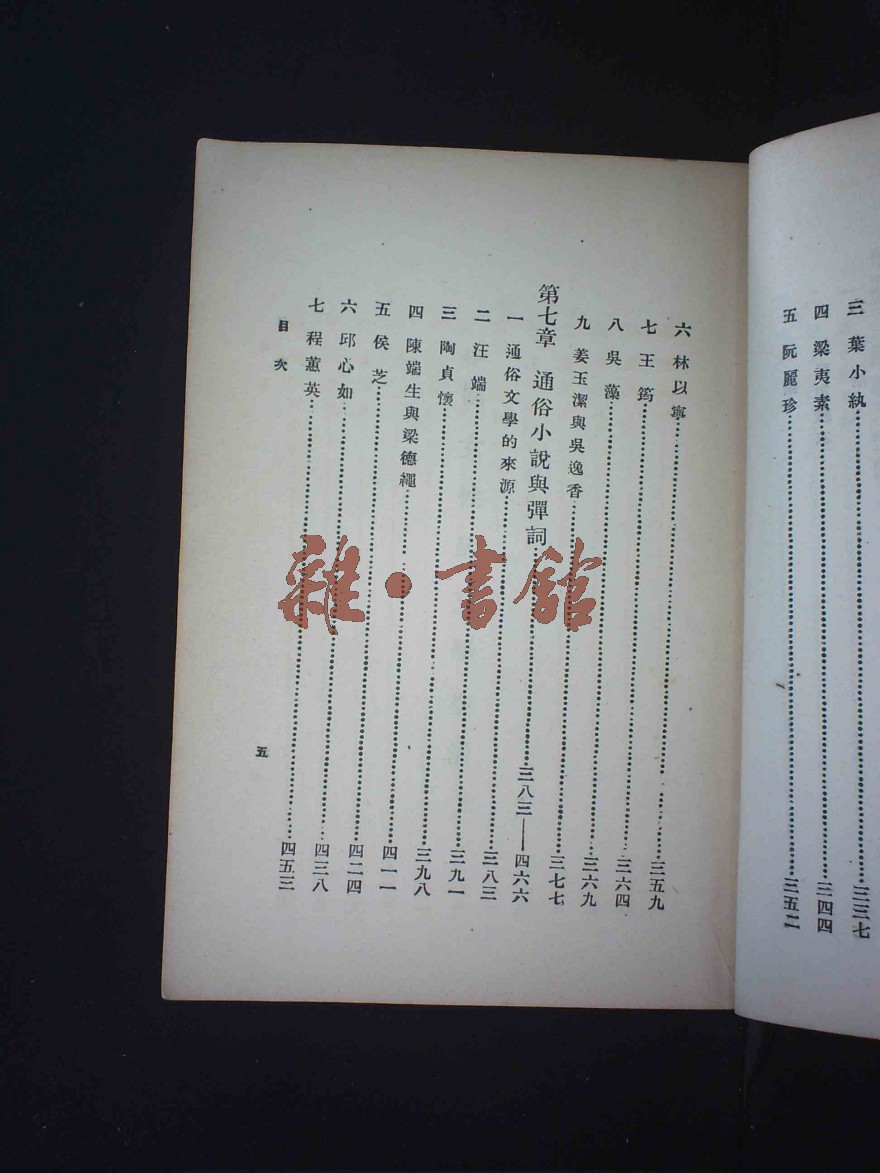 三 葉小紈……三三七
四 梁夷素……三四四
五 阮麗珍……三五二
六 林以寧……三五九
七 王筠……三六四
八 吳藻……三六九
九 姜玉潔與吳逸香……三七七
第七章 通俗小說與彈詞……三八三——四六六
一 通俗文學的來源……三八三
二 汪端……三九一
三 陶貞懷……三九八
四 陳端生與梁德繩……四一一
五 侯芝……四二四
六 邱心如……四三八
七 程蕙英……四五三
目次
五
雜·書館